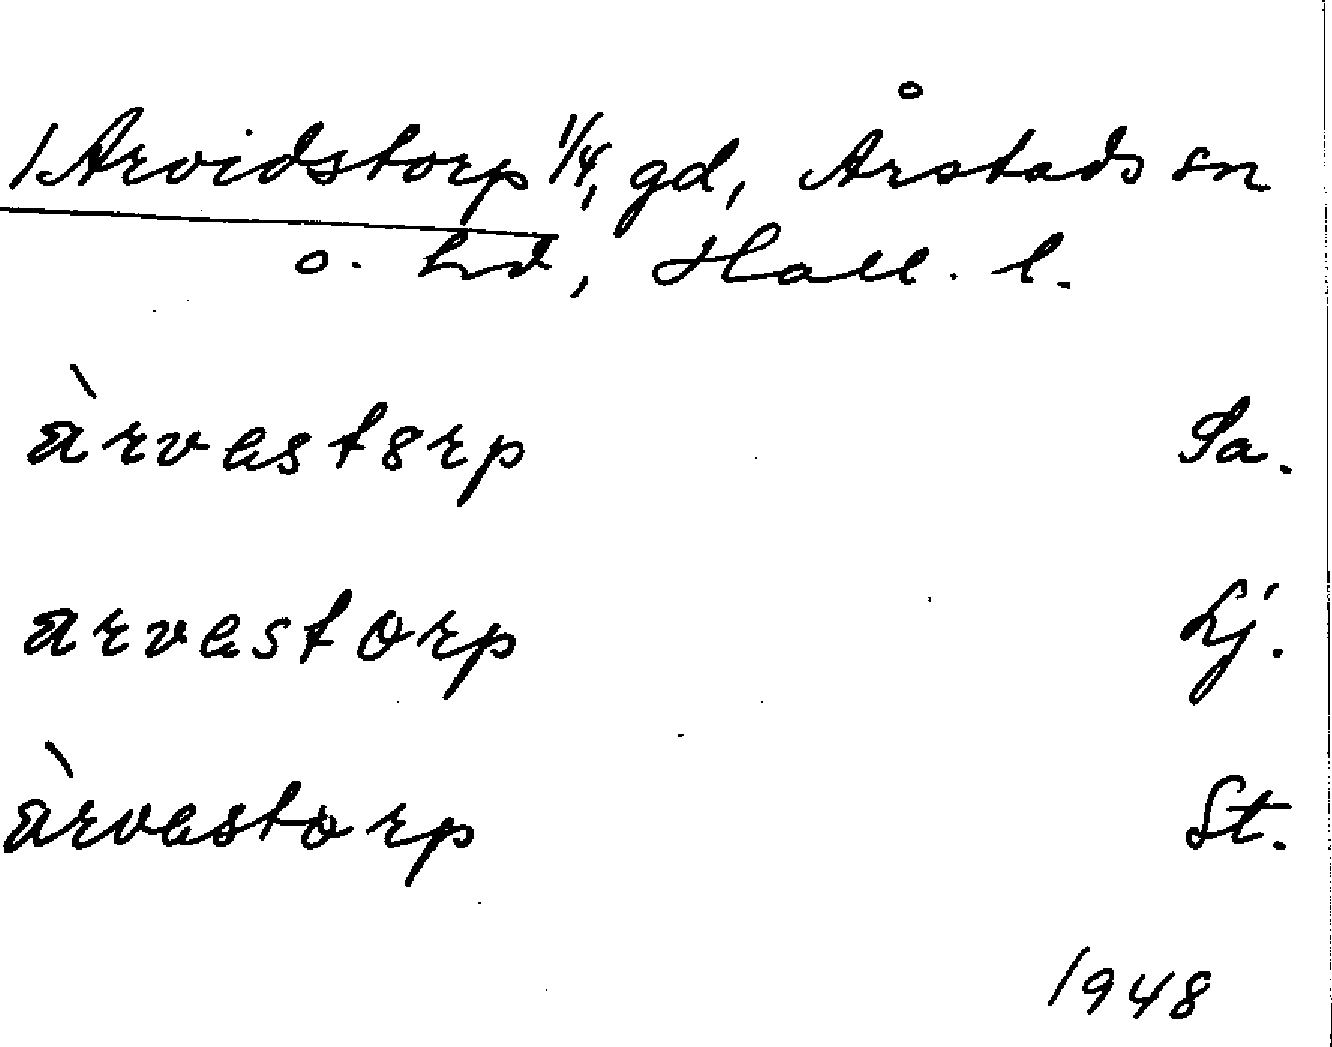 1 Arvidstorp 1/4, gd, Årstads sn
o. hd, Hall. l.
àrvest8rp Sa.
arvestorp Lj.
àrvestorp St.
1948